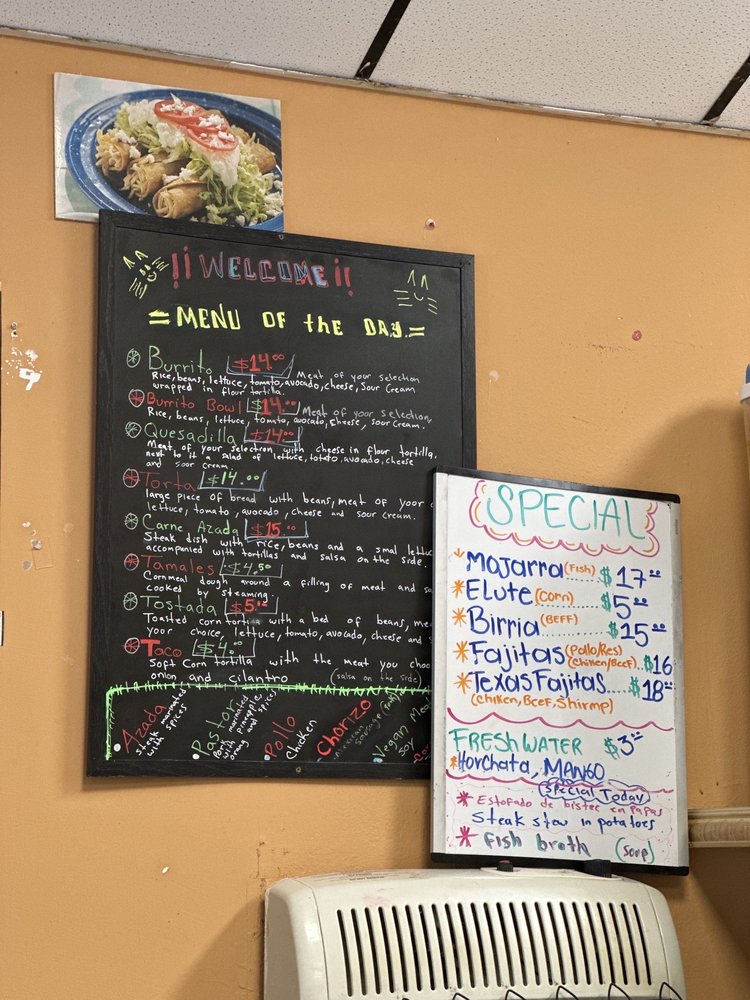 ¡¡ WELCOME ¡¡
= MENU OF the DAY =
Burrito $14.00 Meat of your selection
Rice, beans, lettuce, tomato, avocado, cheese, sour cream
wrapped in flour tortilla.
Burrito Bowl $14.00 Meat of your selection,
Rice, beans, lettuce, tomato, avocado, cheese, sour cream.
Quesadilla $14.00
Meat of your selection with cheese in flour tortilla,
next to it a salad of lettuce, totato, avocado, cheese
and sour cream.
Torta $14.00
large piece of bread with beans, meat of your
lettuce, tomato, avocado, cheese and sour cream.
Carne Azada $15.00
Steak dish with rice, beans and a smal lettuc
accompanied with tortillas and salsa on the side.
Tamales $4.50
Cornmeal dough around a filling of meat and
cooked by steaming
Tostada $5.00
Toasted corn tortilla with a bed of beans,
your choice, lettuce, tomato, avocado, cheese and
Taco $4.00
Soft corn tortilla with the meat you choo
onion and cilantro (salsa on the side)
Azada
steak marinated
with spices
Pastor
Pork marinated
with pineapple,
orang and spices
Pollo
Chicken
Chorizo
mexican
sausage (Pork)
Vegan Meat
soy
SPECIAL
* Mojarra (Fish) $17.00
* Elute (corn) $5.00
* Birria (BEFF) $15.00
* Fajitas (Pollo/Res) (chiken/Beef) $16
* Texas Fajitas $18.00
(chiken, Beef, Shirmp)
FRESH WATER $3.00
* Horchata, MANGO
Special Today
* Estofado de bistec en Papas
Steak stew in potatoes
* Fish broth (soup)